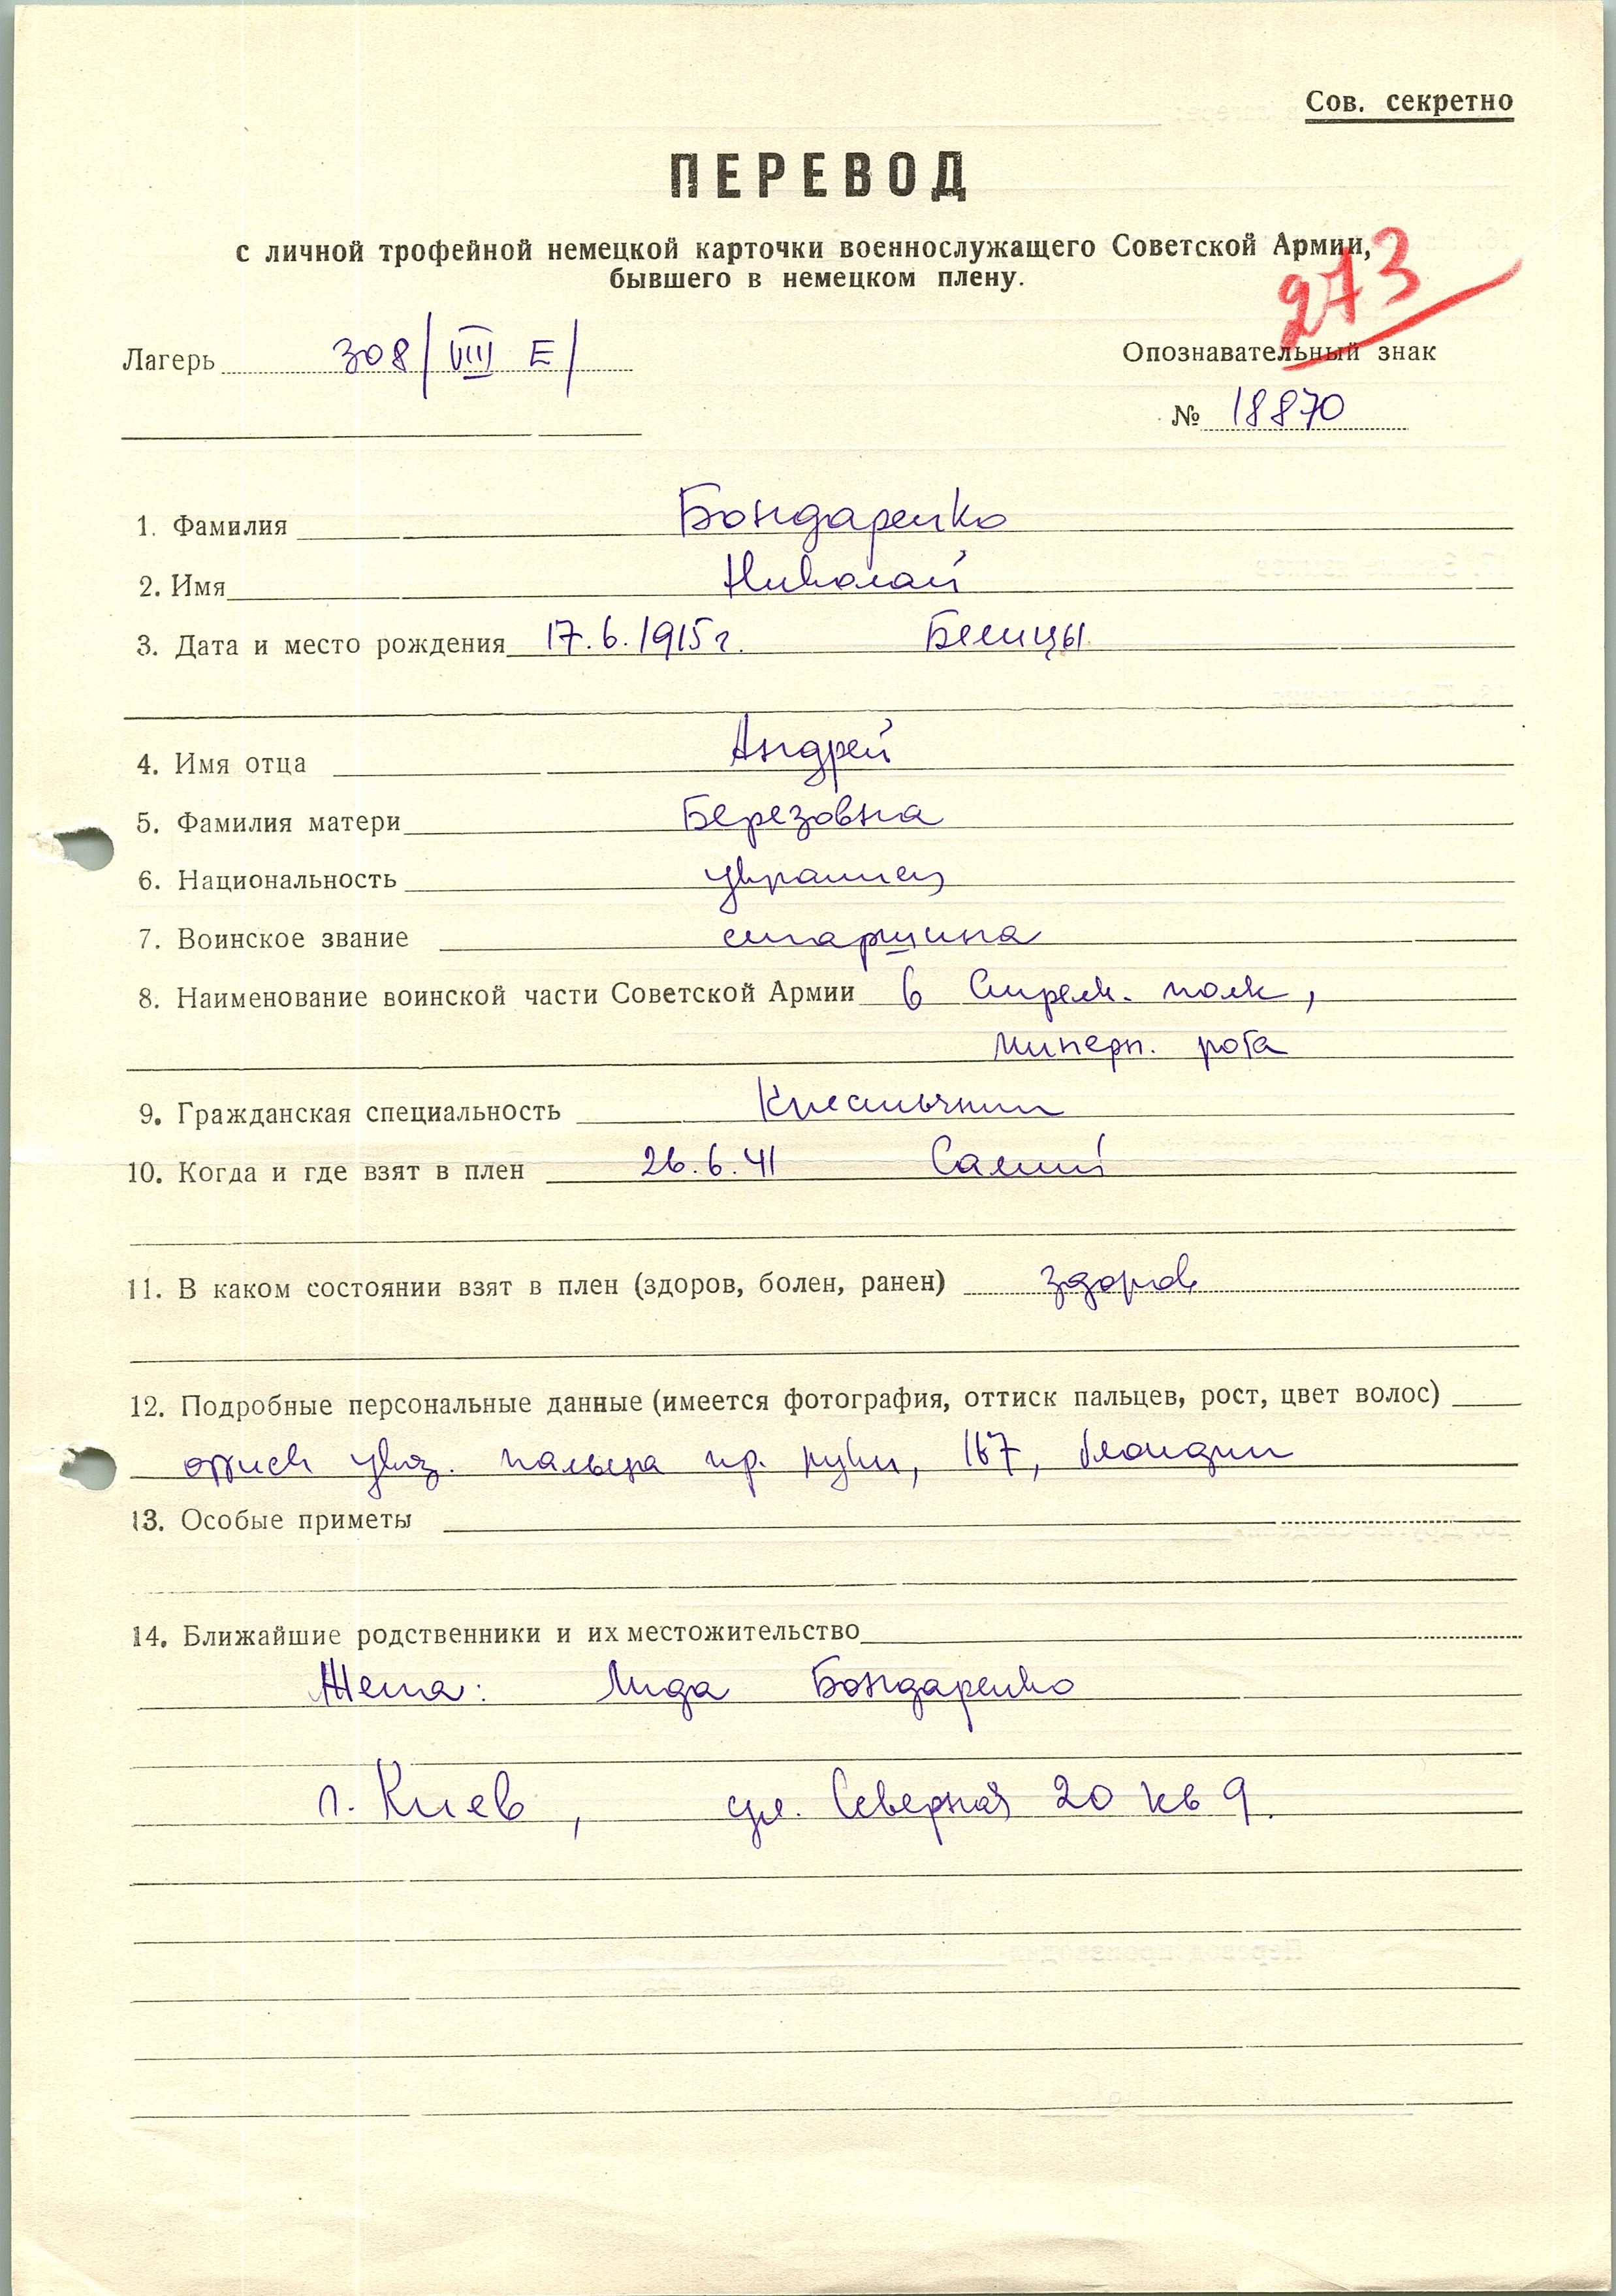 Сов. секретно
ПЕРЕВОД
с личной трофейной немецкой карточки военнослужащего Советской Армии,
бывшего в немецком плену.
273
Лагерь 308/VIII E/
Опознавательный знак
№ 18870
1. Фамилия Бондаренко
2. Имя Николай
3. Дата и место рождения 17.6.1915г. Белицы
4. Имя отца Андрей
5. Фамилия матери Березовна
6. Национальность украинец
7. Воинское звание старшина
8. Наименование воинской части Советской Армии 6 Стрелк. полк,
рота
9. Гражданская специальность Крестьянин
10. Когда и где взят в плен 26.6.41
11. В каком состоянии взят в плен (здоров, болен, ранен) здоров
12. Подробные персональные данные (имеется фотография, оттиск пальцев, рост, цвет волос)
оттиск указ. пальца пр. руки, 167, блондин
13. Особые приметы
14. Ближайшие родственники и их местожительство
Жена: Лида Бондаренко
г. Киев, ул. Северная 20 кв 9.